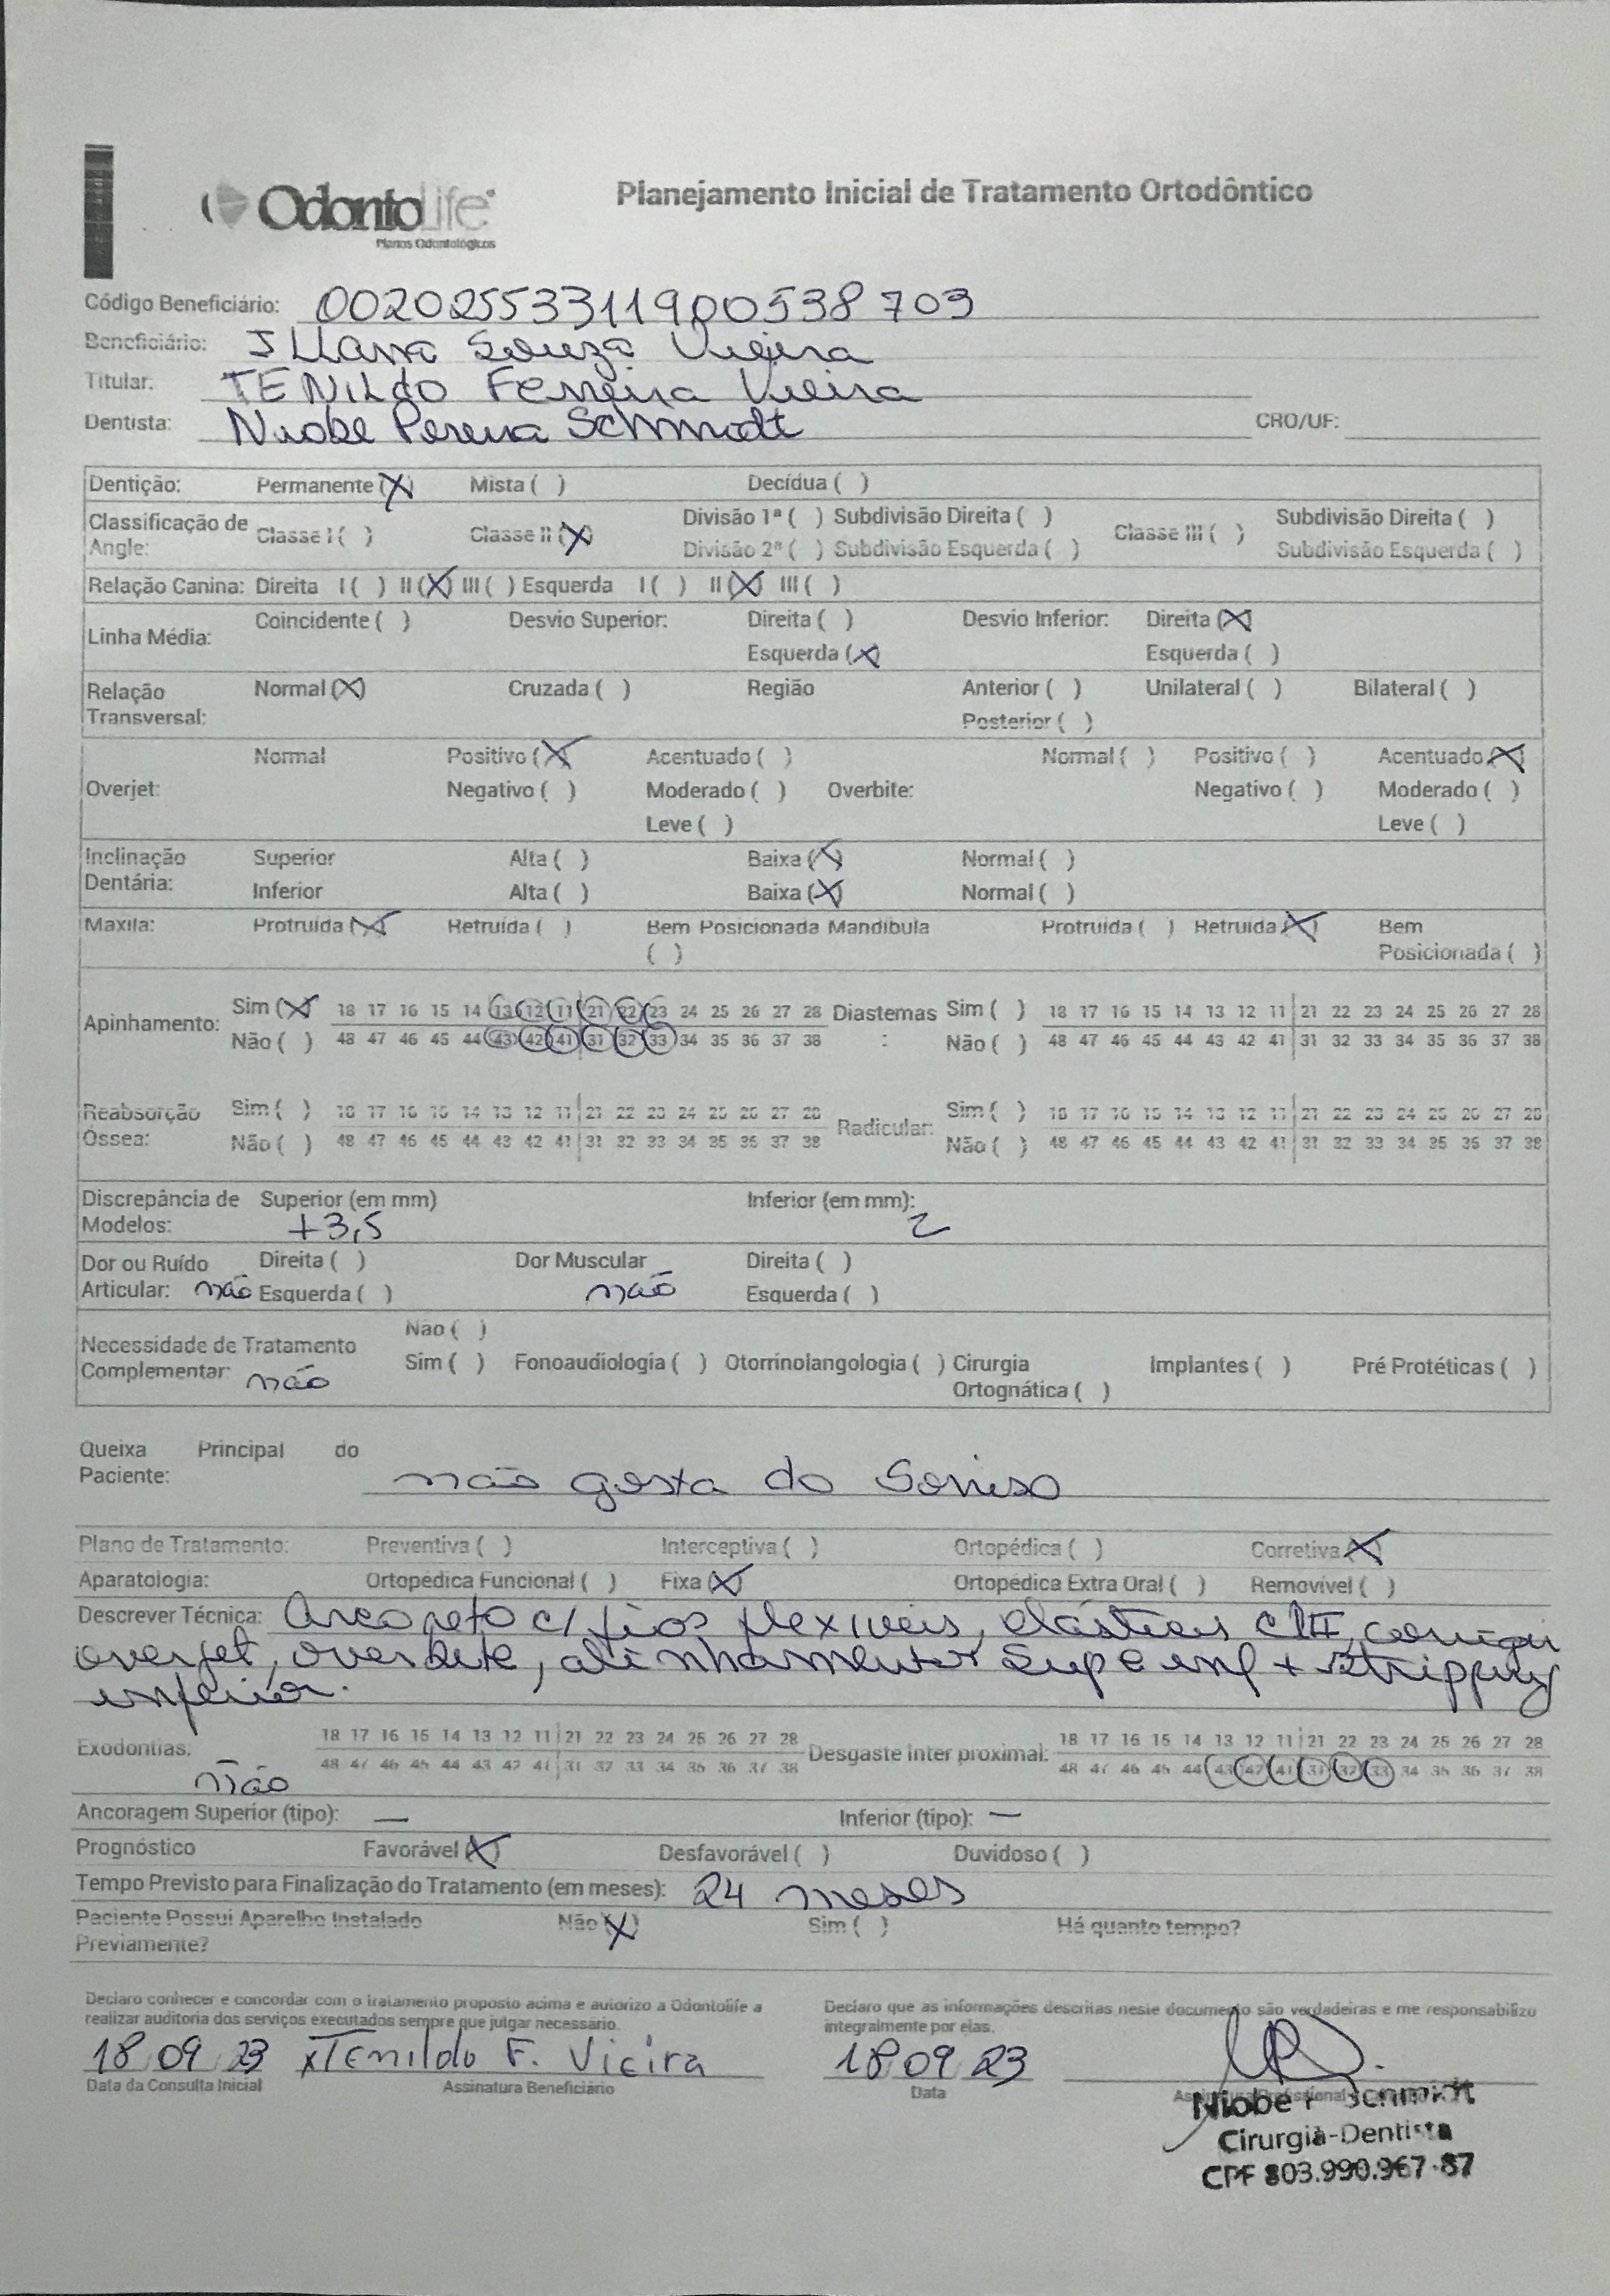 OdontoLife
Planos Odontológicos
Planejamento Inicial de Tratamento Ortodôntico
Código Beneficiário: 00202553311900538703
Beneficiário: Souza Vieira
Titular: TENILdo Ferreira Vieira
Dentista: Niobe Pereira Schmidt CRO/UF:
Dentição: Permanente (X) Mista ( ) Decídua ( )
Classificação de Angle: Classe I ( ) Classe II (X) Divisão 1ª ( ) Subdivisão Direita ( ) Classe III ( ) Subdivisão Direita ( )
Divisão 2ª ( ) Subdivisão Esquerda ( ) Subdivisão Esquerda ( )
Relação Canina: Direita I ( ) II (X) III ( ) Esquerda I ( ) II (X) III ( )
Linha Média: Coincidente ( ) Desvio Superior: Direita ( ) Desvio Inferior: Direita (X)
Esquerda (X) Esquerda ( )
Relação Transversal: Normal (X) Cruzada ( ) Região Anterior ( ) Unilateral ( ) Bilateral ( )
Posterior ( )
Normal Positivo (X) Acentuado ( ) Normal ( ) Positivo ( ) Acentuado (X)
Overjet: Negativo ( ) Moderado ( ) Overbite: Negativo ( ) Moderado ( )
Leve ( ) Leve ( )
Inclinação Dentária: Superior Alta ( ) Baixa (X) Normal ( )
Inferior Alta ( ) Baixa (X) Normal ( )
Maxila: Protruída (X) Retruída ( ) Bem Posicionada ( ) Mandíbula Protruída ( ) Retruída (X) Bem Posicionada ( )
Apinhamento: Sim (X) 18 17 16 15 14 13 12 11 21 22 23 24 25 26 27 28 Diastemas: Sim ( ) 18 17 16 15 14 13 12 11 21 22 23 24 25 26 27 28
Não ( ) 48 47 46 45 44 43 42 41 31 32 33 34 35 36 37 38 Não ( ) 48 47 46 45 44 43 42 41 31 32 33 34 35 36 37 38
Reabsorção Óssea: Sim ( ) 18 17 16 15 14 13 12 11 21 22 23 24 25 26 27 28 Radicular: Sim ( ) 18 17 16 15 14 13 12 11 21 22 23 24 25 26 27 28
Não ( ) 48 47 46 45 44 43 42 41 31 32 33 34 35 36 37 38 Não ( ) 48 47 46 45 44 43 42 41 31 32 33 34 35 36 37 38
Discrepância de Modelos: Superior (em mm) +3,5 Inferior (em mm): 2
Dor ou Ruído Articular: não Direita ( ) Dor Muscular não Direita ( )
Esquerda ( ) Esquerda ( )
Não ( )
Necessidade de Tratamento Complementar: não Sim ( ) Fonoaudiologia ( ) Otorrinolangologia ( ) Cirurgia Ortognática ( ) Implantes ( ) Pré Protéticas ( )
Queixa Principal do Paciente: não gosta do Sorriso
Plano de Tratamento: Preventiva ( ) Interceptiva ( ) Ortopédica ( ) Corretiva (X)
Aparatologia: Ortopédica Funcional ( ) Fixa (X) Ortopédica Extra Oral ( ) Removível ( )
Descrever Técnica: Arco reto c/ fios flexíveis, elásticos Cl II, corrigir
overjet, overbite, alinhamentor Sup e inf + Stripping
inferior.
Exodontias: não 18 17 16 15 14 13 12 11 21 22 23 24 25 26 27 28 Desgaste Inter proximal: 18 17 16 15 14 13 12 11 21 22 23 24 25 26 27 28
48 47 46 45 44 43 42 41 31 32 33 34 35 36 37 38 48 47 46 45 44 43 42 41 31 32 33 34 35 36 37 38
Ancoragem Superior (tipo): — Inferior (tipo): —
Prognóstico Favorável (X) Desfavorável ( ) Duvidoso ( )
Tempo Previsto para Finalização do Tratamento (em meses): 24 meses
Paciente Possui Aparelho Instalado Previamente? Não (X) Sim ( ) Há quanto tempo?
Declaro conhecer e concordar com o tratamento proposto acima e autorizo a Odontolife a
realizar auditoria dos serviços executados sempre que julgar necessário.
Declaro que as informações descritas neste documento são verdadeiras e me responsabilizo
integralmente por elas.
18 09 23 xTenildo F. Vieira 18 09 23
Data da Consulta Inicial Assinatura Beneficiário Data
Niobe P Schmidt
Cirurgiã-Dentista
CPF 803.990.967-87